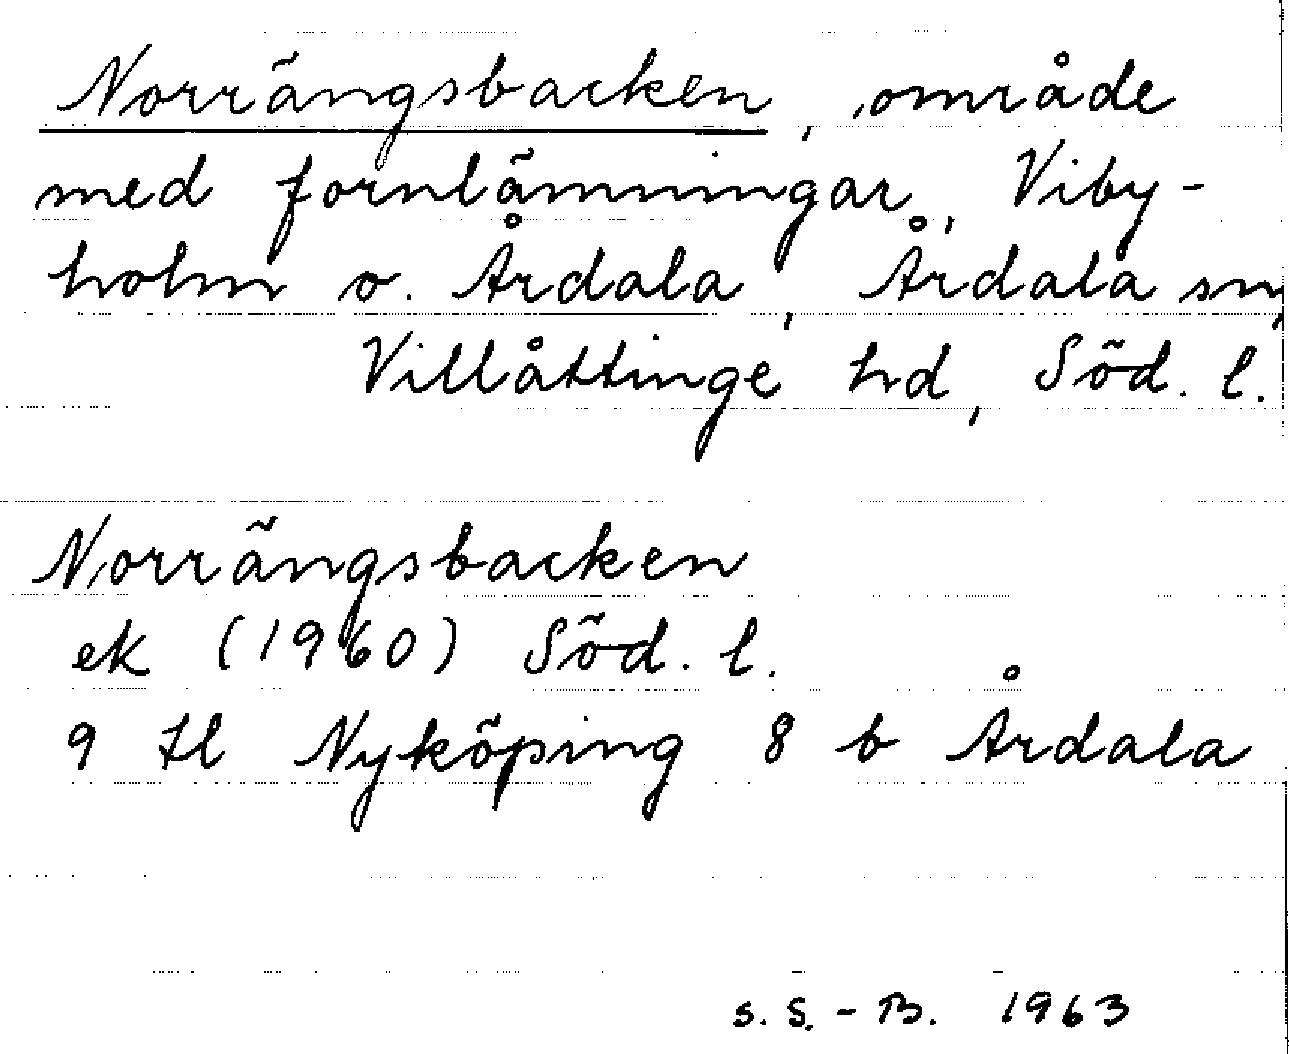 Norrängsbacken, område
med fornlämningar, Viby-
holm o. Årdala, Årdala sn,
Villåttinge hd, Söd. l.
Norrängsbacken
ek (1960) Söd. l.
9 tl Nyköping 8 b Årdala
S. S.-B. 1963